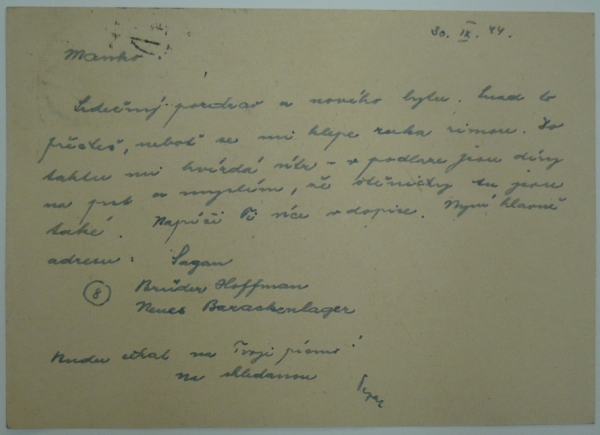 30. IX. 44.
Manko!
Srdečný pozdrav z nového bytu. Snad to
přečteš, neboť se mi klepe ruka zimou. Do
taktu mi hvízdá vítr – v podlaze jsou díry
na prst a myslím, že štěničky tu jsou
také. Napíši Ti více v dopise. Nyní hlavně
adresu: Sagan
8 Brüder Hoffman
Neues Barackenlager
Budu čekat na Tvoji písmo!
Na shledanou